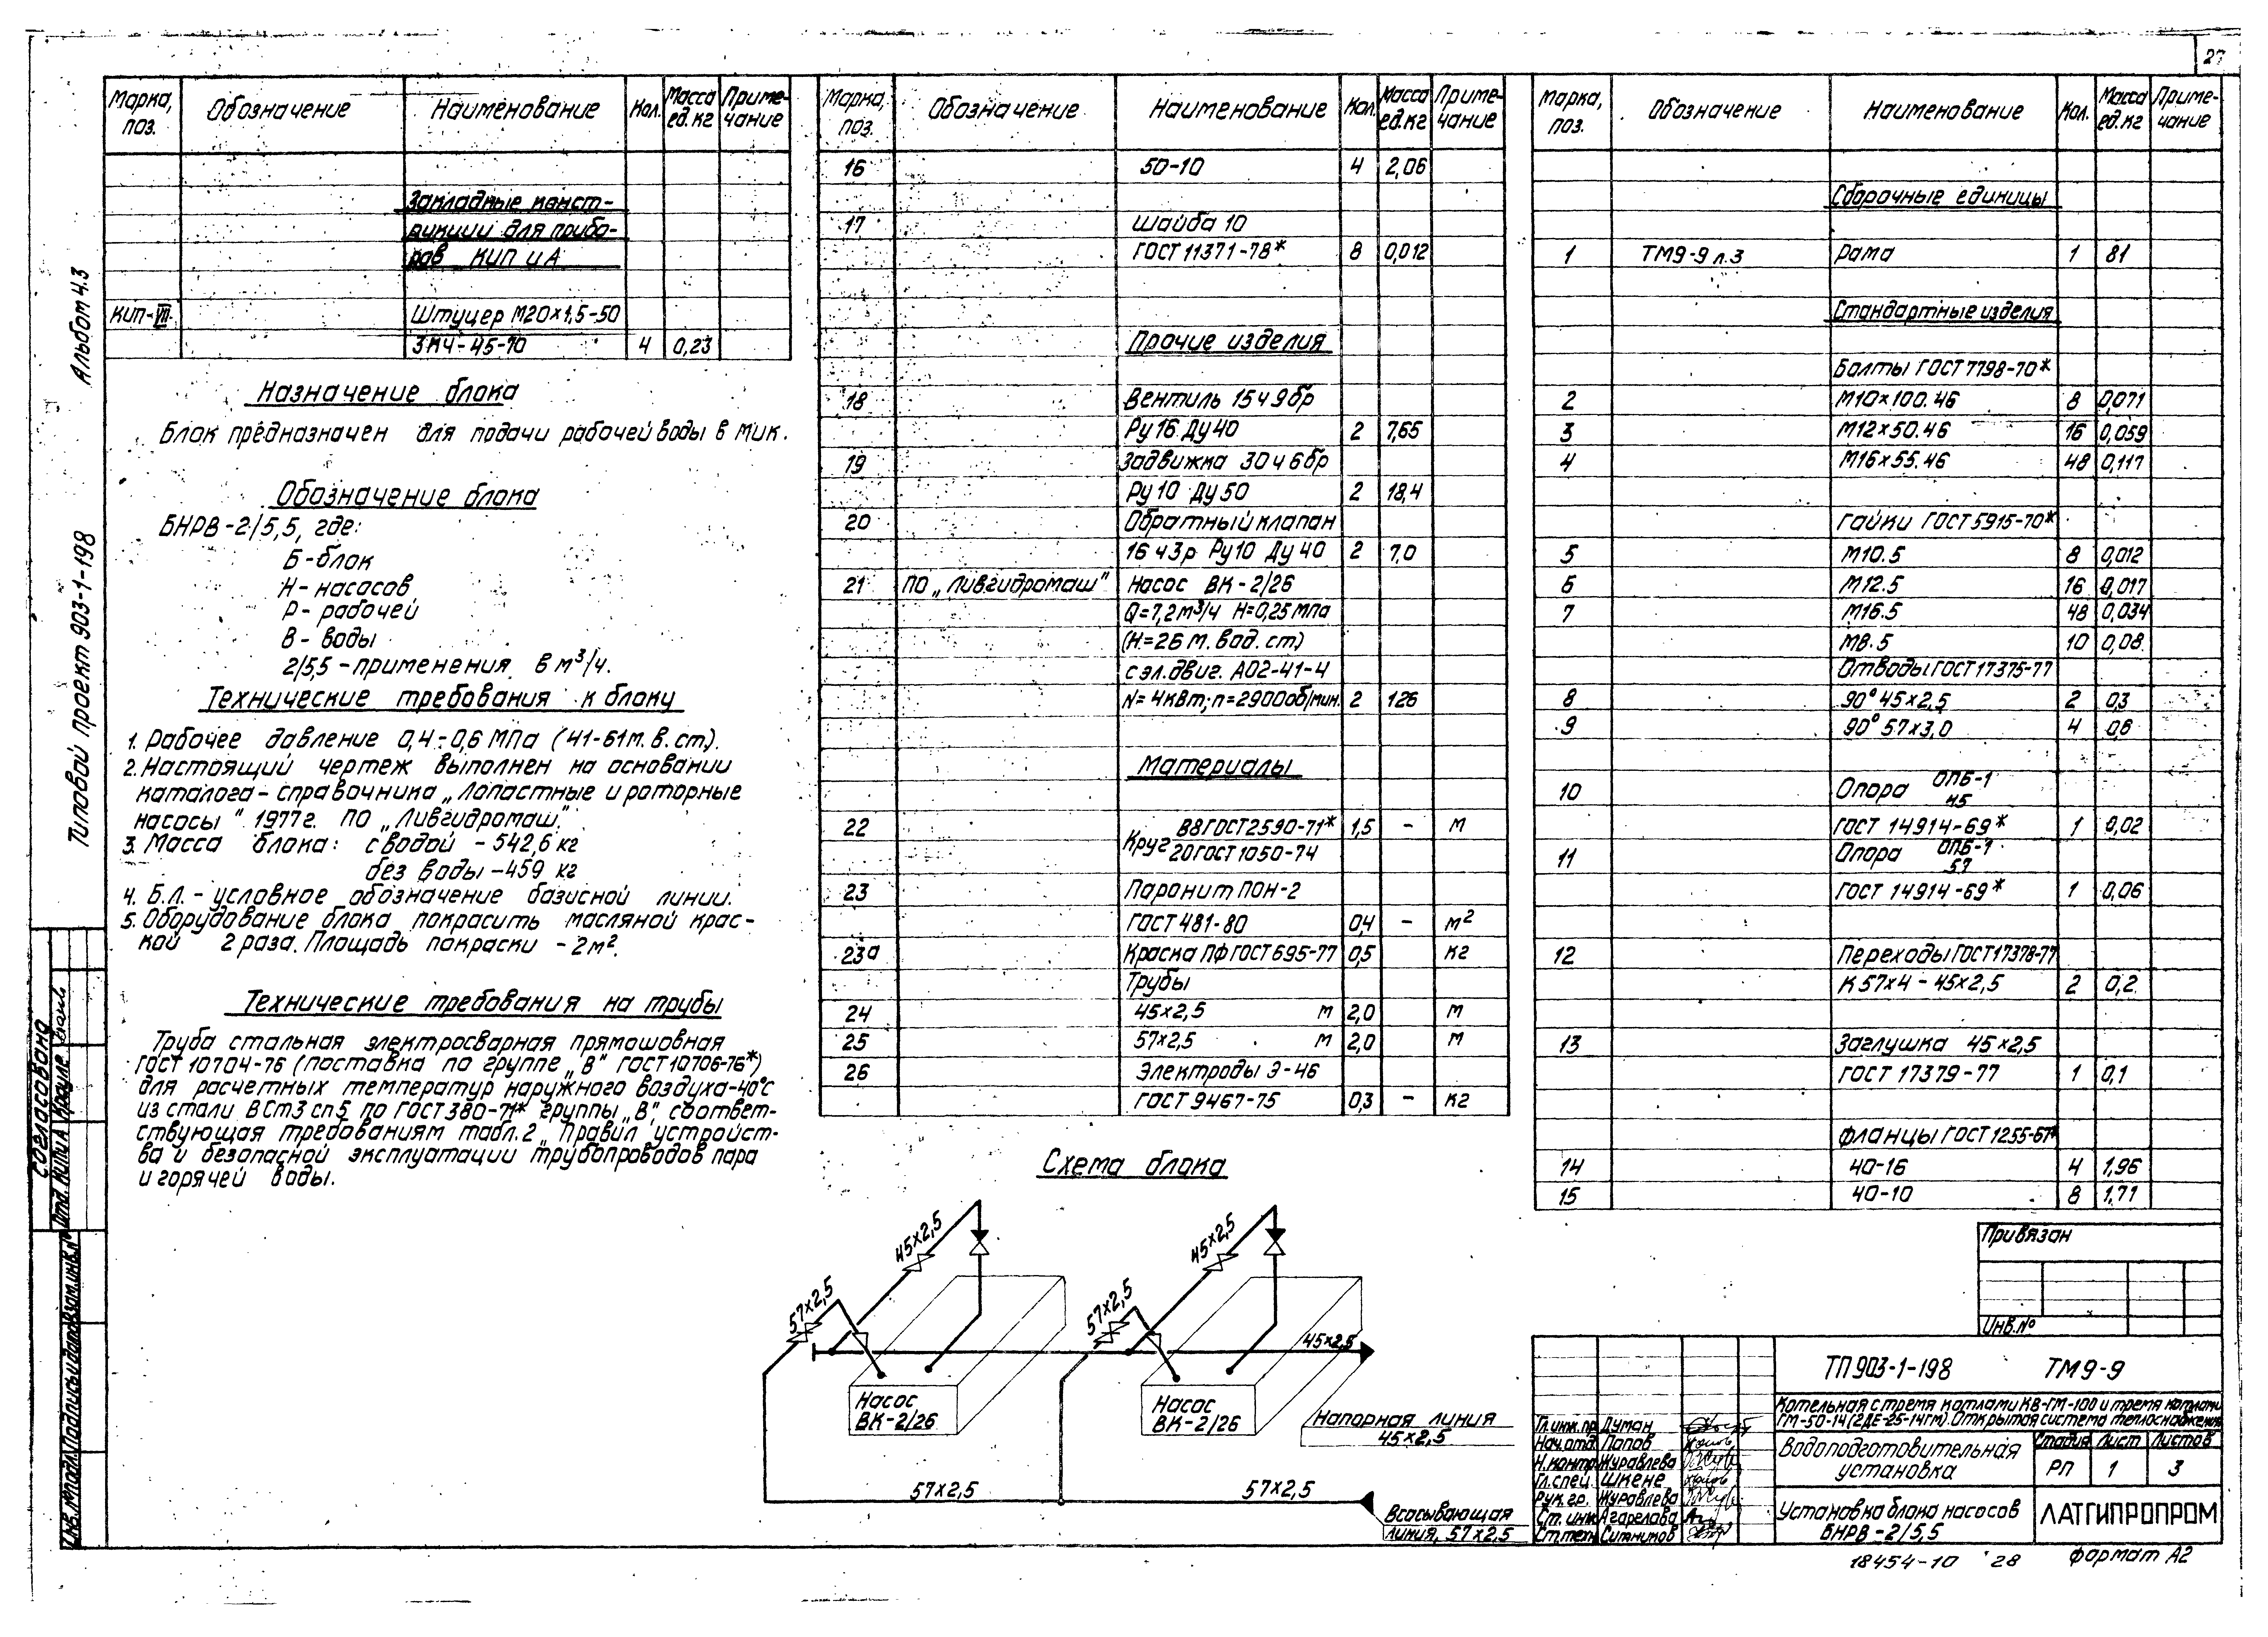 27
Марка, поз. Обозначение Наименование Кол. Масса ед.кг Приме-чание
Закладные конст-
рукции для прибо-
ров КИП и А
КИП-VII Штуцер М20×1,5-50
ЗК4-45-70 4 0,23
Назначение блока
Блок предназначен для подачи рабочей воды в мик.
Обозначение блока
БНРВ-2/5,5, где:
Б-блок
Н-насосов
Р-рабочей
В-воды
2/5,5-применения в м³/ч.
Технические требования к блоку
1. Рабочее давление 0,4-0,6 МПа (41-61м.в.ст.).
2. Настоящий чертеж выполнен на основании
каталога-справочника „Лопастные и роторные
насосы" 1977г. ПО „Ливгидромаш".
3. Масса блока: с водой - 542,6 кг
без воды -459 кг
4. Б.Л. - условное обозначение базисной линии.
5. Оборудование блока покрасить масляной крас-
кой 2 раза. Площадь покраски -2м².
Технические требования на трубы
Труба стальная электросварная прямошовная
ГОСТ 10704-76 (поставка по группе „В" ГОСТ10706-76*)
для расчетных температур наружного воздуха-40°С
из стали ВСт3 сп5 по ГОСТ380-71* группы „В", соответ-
ствующая требованиям табл.2 „Правил устройст-
ва и безопасной эксплуатации трубопроводов пара
и горячей воды.
Марка, поз. Обозначение Наименование Кол. Масса ед.кг Приме-чание
16 50-10 4 2,06
17 Шайба 10
ГОСТ 11371-78* 8 0,012
Прочие изделия
18 Вентиль 15ч9бр
Ру16 Ду40 2 7,65
19 Задвижка 30ч6бр
Ру10 Ду50 2 18,4
20 Обратный клапан
16ч3р Ру10 Ду40 2 7,0
21 ПО „Ливгидромаш" Насос ВК-2/26
Q=7,2м³/ч H=0,25МПа
(H=26 м.вод.ст.)
с эл.двиг. АО2-41-4
N=4кВт; n=2900об/мин. 2 126
Материалы
22 Круг В8ГОСТ2590-71* 1,5 - м
20ГОСТ1050-74
23 Паронит ПОН-2
ГОСТ 481-80 0,4 - м²
23а Краска ПФ ГОСТ695-77 0,5 кг
Трубы
24 45×2,5 м 2,0 м
25 57×2,5 м 2,0 м
26 Электроды Э-46
ГОСТ 9467-75 0,3 - кг
Схема блока
45×2,5
45×2,5
57×2,5
57×2,5
45×2,5
Насос
ВК-2/26
Насос
ВК-2/26
Напорная линия
45×2,5
57×2,5
57×2,5
Всасывающая
линия, 57×2,5
Марка, поз. Обозначение Наименование Кол. Масса ед.кг Приме-чание
Сборочные единицы
1 ТМ9-9 л.3 Рама 1 81
Стандартные изделия
Болты ГОСТ7798-70*
2 М10×100.46 8 0,071
3 М12×50.46 16 0,059
4 М16×55.46 48 0,117
Гайки ГОСТ5915-70*
5 М10.5 8 0,012
6 М12.5 16 0,017
7 М16.5 48 0,034
М8.5 10 0,08
Отводы ГОСТ17375-77
8 90° 45×2,5 2 0,3
9 90° 57×3,0 4 0,6
10 Опора ОПБ-1
45
ГОСТ 14914-69* 1 0,02
11 Опора ОПБ-1
57
ГОСТ 14914-69* 1 0,06
12 Переходы ГОСТ17378-77
К57×4-45×2,5 2 0,2
13 Заглушка 45×2,5
ГОСТ 17379-77 1 0,1
Фланцы ГОСТ1255-67*
14 40-16 4 1,96
15 40-10 8 1,71
Привязан
Инв.№
ТП 903-1-198 ТМ 9-9
Котельная с тремя котлами КВ-ГМ-100 и тремя котлами
ГМ-50-14(2ДЕ-25-14ГМ). Открытая система теплоснабжения
Гл.инж.пр. Думан
Нач.отд. Попов
Н.контр. Журавлева
Гл.спец. Шкене
Рук.гр. Журавлева
Ст.инж. Агарелава
Ст.техн. Ситников
Водоподготовительная
установка
Стадия Лист Листов
РП 1 3
Установка блока насосов
БНРВ-2/5,5
ЛАТГИПРОПРОМ
18454-10 28 формат А2
Альбом 4.3
Типовой проект 903-1-198
Согласовано
Отд. КИПиА Крауле
Инв.№подл. Подпись и дата Взам.инв.№